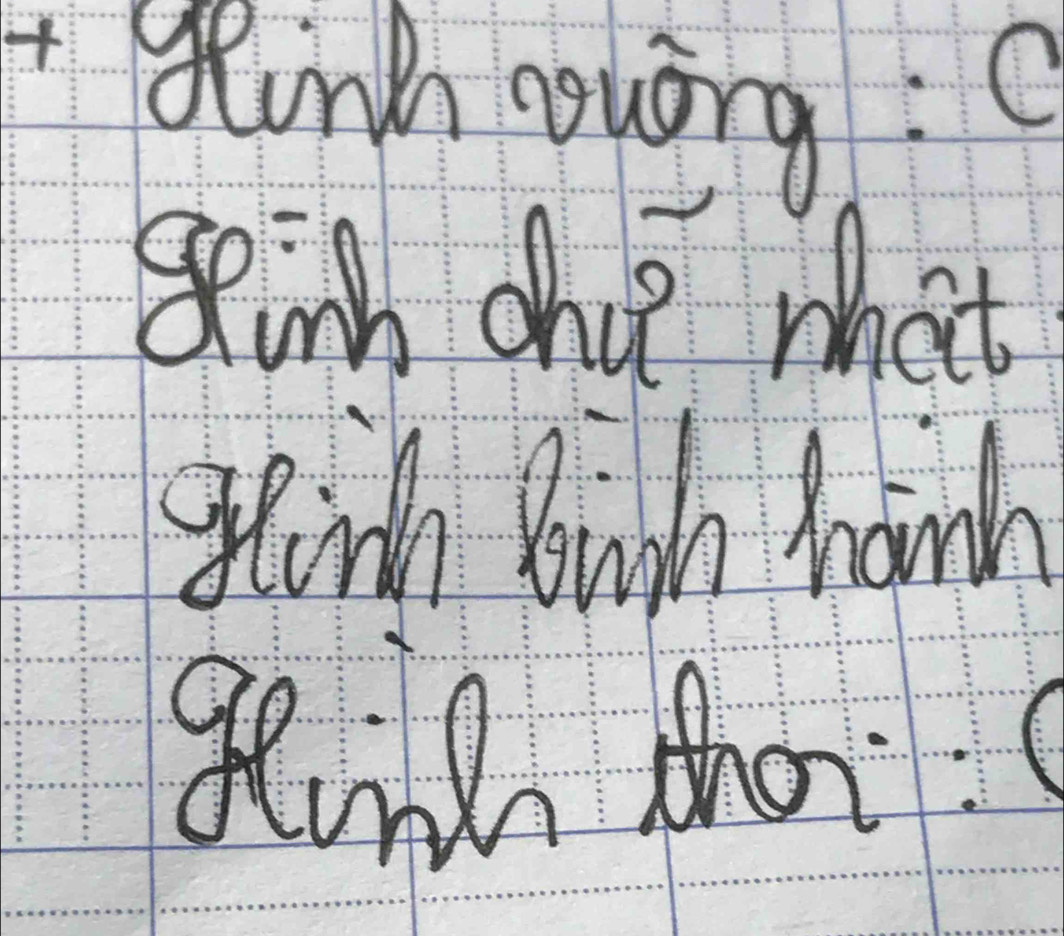 + Hình vuông : C
Hình chữ nhật
Hình bình hành
Hình thoi : C